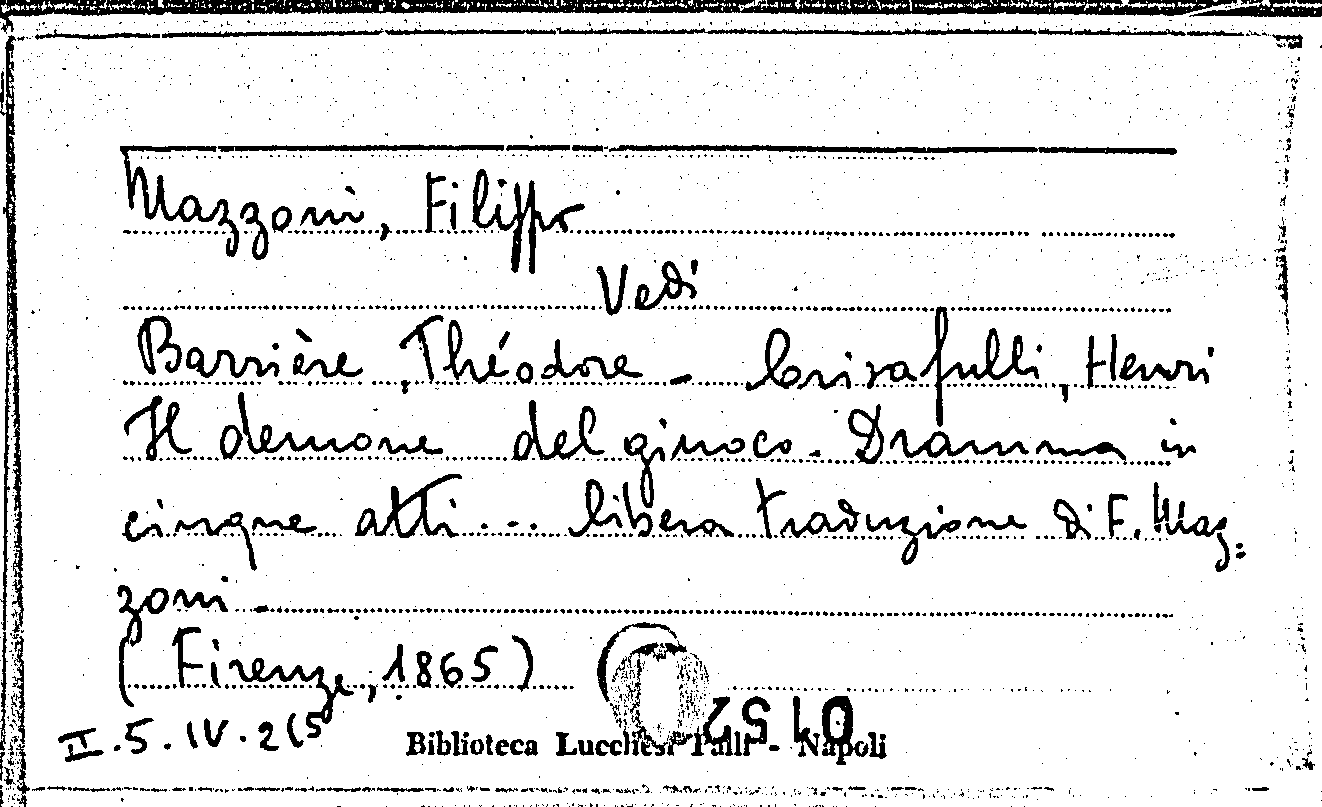 Mazzoni, Filippo
Vedi
Barrière, Théodore - Crisafulli, Henri
Il demone del giuoco. Dramma in
cinque atti ... libera traduzione di F. Maz=
zoni -
(Firenze, 1865)
II.5.IV.2(5
0152
Biblioteca Lucchesi Palli - Napoli